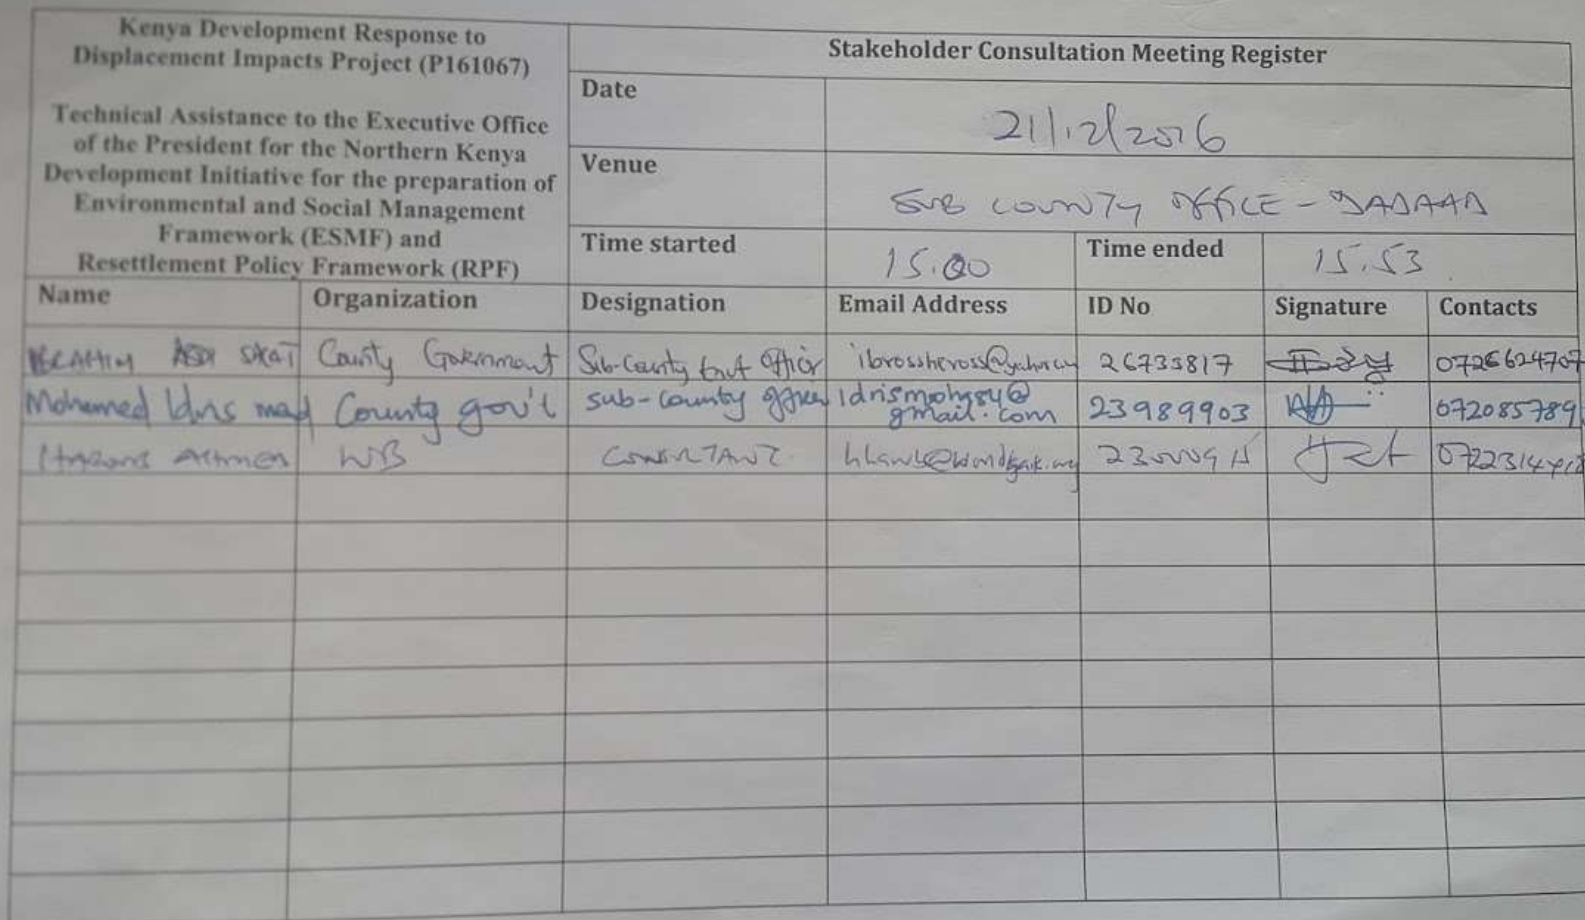 Kenya Development Response to
Displacement Impacts Project (P161067)
Technical Assistance to the Executive Office
of the President for the Northern Kenya
Development Initiative for the preparation of
Environmental and Social Management
Framework (ESMF) and
Resettlement Policy Framework (RPF)
Stakeholder Consultation Meeting Register
Date 21/12/2016
Venue SUB COUNTY OFFICE - DADAAB
Time started 15.00 Time ended 15.53
Name Organization Designation Email Address ID No Signature Contacts
ABDI County Government Sub-County Officer 26733817 0726624707
Mohamed Idris County gov't sub-county officer 23989903 072085789
gmail.com
WB CONSULTANT